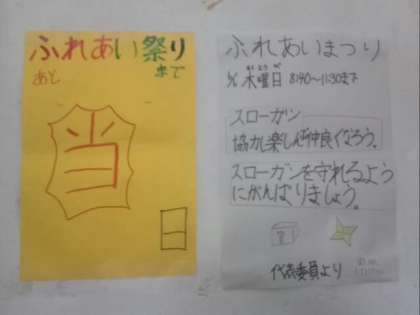 ふれあい祭り
あと
まで
当
日
ふれあいまつり
木曜日 8:40〜11:30まで
もくようび
スローガン
協力し楽しんで仲良くなろう。
スローガンを守れるよう
にがんばりましょう。
?
代表委員より